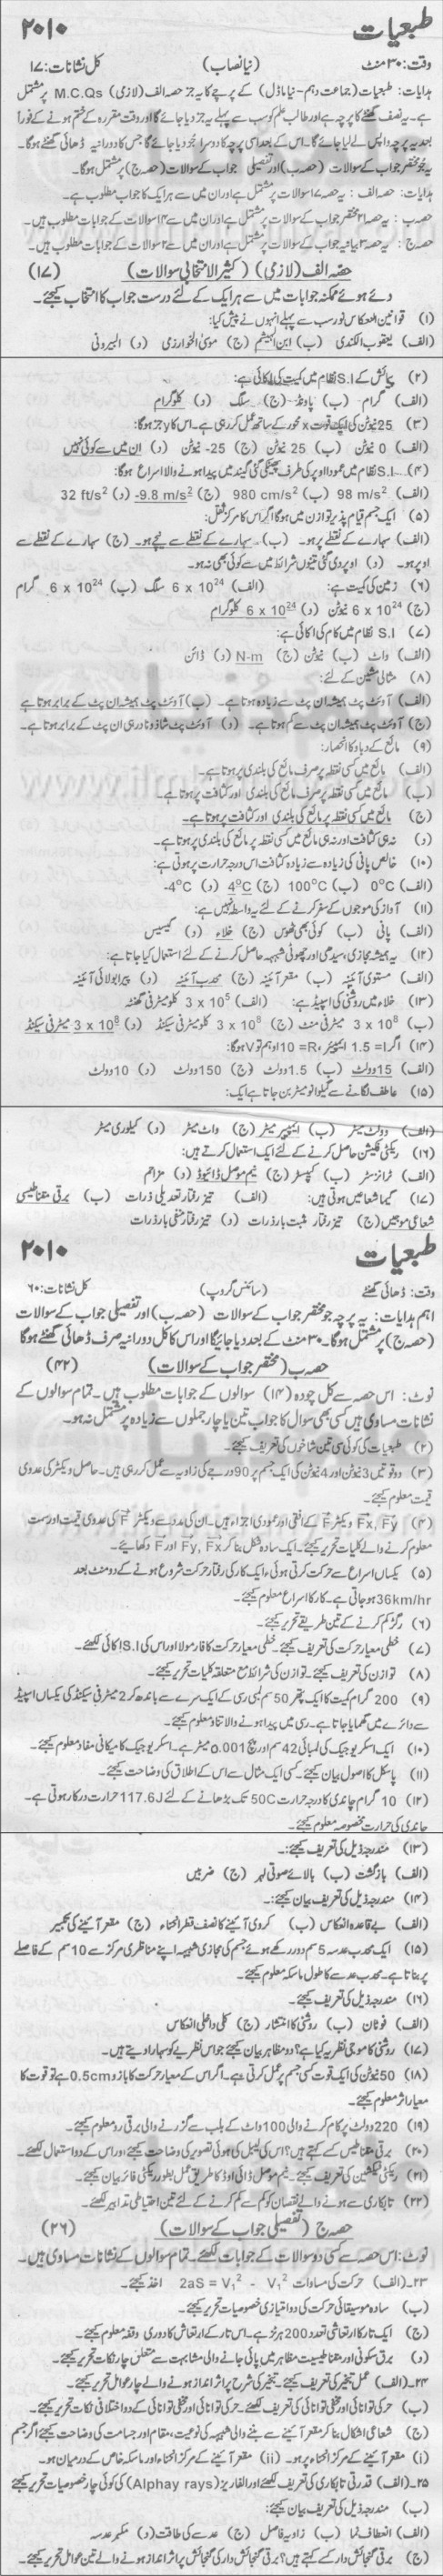 طبعیات ۲۰۱۰
وقت: ۳۰ منٹ (نیا نصاب) کل نشانات: ۱۷
ہدایات: طبعیات (جماعت دہم۔ نیا ماڈل) کے پرچے کا یہ جز حصہ الف (لازمی) M.C.Qs پر مشتمل
ہے۔ یہ نصف گھنٹے کا پرچہ ہے اور طالب علم کو سب سے پہلے یہ جز دیا جائے گا اور وقت مقررہ کے ختم ہونے کے فوراً
بعد یہ پرچہ واپس لے لیا جائے گا۔ اس کے بعد اسی پرچہ کا دوسرا جز دیا جائے گا جس کا دورانیہ ڈھائی گھنٹے ہوگا۔
یہ جز مختصر جواب کے سوالات (حصہ ب) اور تفصیلی جواب کے سوالات (حصہ ج) پر مشتمل ہوگا۔
ہدایات: حصہ الف: یہ حصہ ۱۷ سوالات پر مشتمل ہے اور ان میں سے ہر ایک کا جواب مطلوب ہے۔
حصہ ب: یہ حصہ ۲۱ مختصر جواب کے سوالات پر مشتمل ہے اور ان میں سے ۱۴ سوالات کے جوابات مطلوب ہیں۔
حصہ ج: یہ حصہ ۳ بیانیہ جواب کے سوالات پر مشتمل ہے اور ان میں سے ۲ سوالات کے جوابات مطلوب ہیں۔
حصہ الف (لازمی) (کثیر الانتخابی سوالات) (۱۷)
دئے ہوئے ممکنہ جوابات میں سے ہر ایک کے لئے درست جواب کا انتخاب کیجئے۔
(۱) قوانین انعکاس نور سب سے پہلے انہوں نے پیش کیا:
(الف) یعقوب الکندی (ب) ابن الہیثم (ج) موسیٰ الخوارزمی (د) البیرونی
(۲) پیمائش کے S.I نظام میں کمیت کی اکائی ہے:
(الف) گرام (ب) پاونڈ (ج) سلگ (د) کلوگرام
(۳) 25 نیوٹن کی ایک قوت x محور کے ساتھ عمل کر رہی ہے۔ اس کا y جز ہوگا:
(الف) 0 نیوٹن (ب) 25 نیوٹن (ج) 25- نیوٹن (د) ان میں سے کوئی نہیں
(۴) S.I نظام میں عموداً اوپر کی طرف پھینکی گئی گیند میں پیدا ہونے والا اسراع ہوگا:
(الف) 98 m/s² (ب) 980 cm/s² (ج) -9.8 m/s² (د) 32 ft/s²
(۵) ایک جسم قیام پذیر توازن میں ہوگا اگر اس کا مرکز ثقل:
(الف) سہارے کے نقطے پر ہو۔ (ب) سہارے کے نقطے سے نیچے ہو۔ (ج) سہارے کے نقطے سے
اوپر ہو۔ (د) اوپر دی گئی تینوں شرائط میں سے کوئی بھی نہ ہو۔
(۶) زمین کی کمیت ہے: (الف) 6 x 10²⁴ سلگ (ب) 6 x 10²⁴ گرام
(ج) 6 x 10²⁴ نیوٹن (د) 6 x 10²⁴ کلوگرام
(۷) S.I نظام میں کام کی اکائی ہے:
(الف) واٹ (ب) نیوٹن (ج) N-m (د) ڈائن
(۸) مثالی مشین کے لئے:
(الف) آؤٹ پٹ ہمیشہ ان پٹ سے زیادہ ہوتا ہے۔ (ب) آؤٹ پٹ ہمیشہ ان پٹ کے برابر ہوتا ہے
(ج) آؤٹ پٹ ہمیشہ ان پٹ سے کم ہوتا ہے۔ (د) آؤٹ پٹ شاذ و نادر ہی ان پٹ کے برابر ہوتا ہے۔
(۹) مائع کے دباؤ کا انحصار:
(الف) مائع میں کسی نقطہ پر صرف مائع کی بلندی پر ہوتا ہے۔
(ب) مائع میں کسی نقطہ پر صرف مائع کی بلندی اور کثافت پر ہوتا ہے۔
(ج) مائع میں کسی نقطہ پر مائع کی بلندی اور کثافت پر ہوتا ہے۔
(د) نہ ہی کثافت اور نہ ہی مائع میں کسی نقطہ پر مائع کی بلندی پر ہوتا ہے۔
(۱۰) خالص پانی کی زیادہ سے زیادہ کثافت اس درجہ حرارت پر ہوتی ہے:
(الف) 0°C (ب) 100°C (ج) 4°C (د) -4°C
(۱۱) آواز کی موجوں کے سفر کرنے کے لئے یہ واسطہ نہیں ہے:
(الف) پانی (ب) کوئی بھی ٹھوس (ج) خلاء (د) گیسیں
(۱۲) یہ ہمیشہ مجازی، سیدھی اور چھوٹی شبیہہ حاصل کرنے کے لئے استعمال کیا جاتا ہے:
(الف) مستوی آئینہ (ب) مقعر آئینہ (ج) محدب آئینہ (د) پیرابولائی آئینہ
(۱۳) خلاء میں روشنی کی اسپیڈ ہے: (الف) 3 x 10⁵ کلومیٹر فی گھنٹہ
(ب) 3 x 10⁸ میٹر فی منٹ (ج) 3 x 10⁸ کلومیٹر فی سیکنڈ (د) 3 x 10⁸ میٹر فی سیکنڈ
(۱۴) اگر I= 1.5 ایمپیئر، R= 10 اوہم تو V ہوگا:
(الف) 15 وولٹ (ب) 1.5 وولٹ (ج) 150 وولٹ (د) 10 وولٹ
(۱۵) عاطف لگانے سے گیلوانومیٹر بن جاتا ہے ایک:
(الف) وولٹ میٹر (ب) ایمپیئر میٹر (ج) واٹ میٹر (د) کیلوری میٹر
(۱۶) ریکٹی فکیشن حاصل کرنے کے لئے ایک استعمال کرتے ہیں:
(الف) ٹرانزسٹر (ب) کپیسٹر (ج) نیم موصل ڈائیوڈ (د) مزاحم
(۱۷) گیما شعاعیں ہوتی ہیں: (الف) تیز رفتار تعدیلی ذرات (ب) برقی مقناطیسی
شعاعی موجیں (ج) تیز رفتار مثبت بار ذرات (د) تیز رفتار منفی بار ذرات
طبعیات ۲۰۱۰
وقت: ڈھائی گھنٹے (سائنس گروپ) کل نشانات: ۶۰
اہم ہدایات: یہ پرچہ جو مختصر جواب کے سوالات (حصہ ب) اور تفصیلی جواب کے سوالات
(حصہ ج) پر مشتمل ہوگا۔ ۳۰ منٹ کے بعد دیا جائیگا اور اس کا کل دورانیہ صرف ڈھائی گھنٹے ہوگا
حصہ ب (مختصر جواب کے سوالات) (۴۲)
نوٹ: اس حصہ سے کل چودہ (۱۴) سوالوں کے جوابات مطلوب ہیں۔ تمام سوالوں کے
نشانات مساوی ہیں کسی بھی سوال کا جواب تین یا چار جملوں سے زیادہ پر مشتمل نہ ہو۔
(۲) طبعیات کی کوئی سی تین شاخوں کی تعریف کیجئے۔
(۳) دو قوتیں 3 نیوٹن اور 4 نیوٹن کی ایک جسم پر 90 درجے کی زاویہ سے عمل کر رہی ہیں۔ حاصل ویکٹر کی عددی
قیمت معلوم کیجئے۔
(۴) Fx, Fy ویکٹر F کے افقی اور عمودی اجزاء ہیں۔ ان کی مدد سے ویکٹر F کی عددی قیمت اور سمت
معلوم کرنے والے کلیات تحریر کیجئے۔ ایک سادہ شکل بنا کر Fy, Fx اور F دکھائیے۔
(۵) یکساں اسراع سے حرکت کرتی ہوئی ایک کار کی رفتار حرکت شروع ہونے کے دو منٹ بعد
36km/hr ہو جاتی ہے۔ کار کا اسراع معلوم کیجئے۔
(۶) رگڑ کم کرنے کے تین طریقے تحریر کیجئے۔
(۷) خطی معیار حرکت کی تعریف کیجئے۔ خطی معیار حرکت کا فارمولا اور اس کی S.I اکائی لکھئے۔
(۸) توازن کی تعریف کیجئے۔ توازن کی شرائط مع متعلقہ کلیات تحریر کیجئے۔
(۹) 200 گرام کمیت کا ایک پتھر 50 سم لمبی رسی کے ایک سرے سے باندھ کر 2 میٹر فی سیکنڈ کی یکساں اسپیڈ
سے دائرے میں گھمایا جاتا ہے۔ رسی میں پیدا ہونے والا تناؤ معلوم کیجئے۔
(۱۰) ایک اسکریو جیک کی لمبائی 42 سم اور پچ 0.001 میٹر ہے۔ اسکریو جیک کا میکانی مفاد معلوم کیجئے۔
(۱۱) پاسکل کا اصول بیان کیجئے۔ کسی ایک مثال سے اس کے اطلاق کی وضاحت کیجئے۔
(۱۲) 10 گرام چاندی کا درجہ حرارت 50C تک بڑھانے کے لئے 117.6J حرارت درکار ہوتی ہے۔
چاندی کی حرارت مخصوصہ معلوم کیجئے۔
(۱۳) مندرجہ ذیل کی تعریف کیجئے:۔
(الف) بازگشت (ب) بالائے صوتی لہر (ج) ضربیں
(۱۴) مندرجہ ذیل کی تعریف بیان کیجئے:۔
(الف) بے قاعدہ انعکاس (ب) کروی آئینے کا نصف قطر انحناء (ج) مقعر آئینے کی تکبیر
(۱۵) ایک محدب عدسہ 5 سم دور رکھے ہوئے جسم کی مجازی شبیہہ اپنے مناظری مرکز سے 10 سم کے فاصلے
پر بناتا ہے۔ محدب عدسے کا طول ماسکہ معلوم کیجئے۔
(۱۶) مندرجہ ذیل کی تعریف کیجئے۔
(الف) فوٹان (ب) روشنی کا انتشار (ج) کلی داخلی انعکاس
(۱۷) روشنی کا موجی نظریہ کیا ہے؟ دو مظاہر بیان کیجئے جو اس نظریے کو سہارا دیتے ہیں۔
(۱۸) 50 نیوٹن کی ایک قوت کسی جسم پر عمل کرتی ہے۔ اگر اس کے معیار حرکت کا بازو 0.5cm ہے تو قوت کا
معیار اثر معلوم کیجئے۔
(۱۹) 220 وولٹ پر کام کرنے والی 100 واٹ کے بلب سے گزرنے والی برقی رو معلوم کیجئے۔
(۲۰) برقی مقناطیس کسے کہتے ہیں؟ اس کی لیبل کی ہوئی تصویر کی وضاحت کیجئے اور اس کے دو استعمال لکھئے۔
(۲۱) ریکٹی فیکشین کی تعریف کیجئے۔ نیم موصل ڈائی اوڈ کا طریق عمل بطور ریکٹی فائر بیان کیجئے۔
(۲۲) تابکاری سے ہونے والے نقصان کو کم سے کم کرنے کے لئے تین احتیاطی تدابیر لکھئے۔
حصہ ج (تفصیلی جواب کے سوالات) (۲۶)
نوٹ: اس حصہ سے کسی دو سوالات کے جوابات لکھئے۔ تمام سوالوں کے نشانات مساوی ہیں۔
۲۳۔ (الف) حرکت کی مساوات 2aS = V₁² - V₁² اخذ کیجئے۔
(ب) سادہ موسیقائی حرکت کی دو امتیازی خصوصیات تحریر کیجئے۔
(ج) ایک تار کا ارتعاشی تعدد 200 ہرٹز ہے۔ اس تار کے ارتعاش کا دوری وقفہ معلوم کیجئے۔
(د) برق سکونی اور مقناطیسیت مظاہر میں پائی جانے والی مشابہت سے متعلق چار نکات تحریر کیجئے۔
۲۴۔ (الف) عمل تبخیر کی تعریف کیجئے۔ تبخیر کی شرح پر اثر انداز ہونے والے چار عوامل تحریر کیجئے۔
(ب) حرکی توانائی اور مخفی توانائی کی تعریف لکھئے۔ حرکی توانائی اور مخفی توانائی کے دو اختلافی نکات تحریر کیجئے۔
(ج) شعاعی اشکال بنا کر مقعر آئینے سے بننے والی شبیہہ کی نوعیت، مقام اور جسامت کی وضاحت کیجئے اگر جسم
(i) مقعر آئینے کے مرکز انحناء پر ہو۔ (ii) مقعر آئینے کے مرکز انحناء اور ماسکہ خاص کے درمیان ہو۔
۲۵۔ (الف) قدرتی تابکاری کی تعریف لکھئے اور الفا ریز (Alphay rays) کی کوئی چار خصوصیات تحریر کیجئے
(ب) مندرجہ ذیل کی تعریف بیان کیجئے:
(الف) انعطاف نما (ب) زاویہ فاصل (ج) عدسے کی طاقت (د) مکبر عدسہ
(ج) برقی گنجائش دار کسے کہتے ہیں؟ برقی گنجائش دار کی گنجائش پر اثر انداز ہونے والے تین عوامل تحریر کیجئے۔